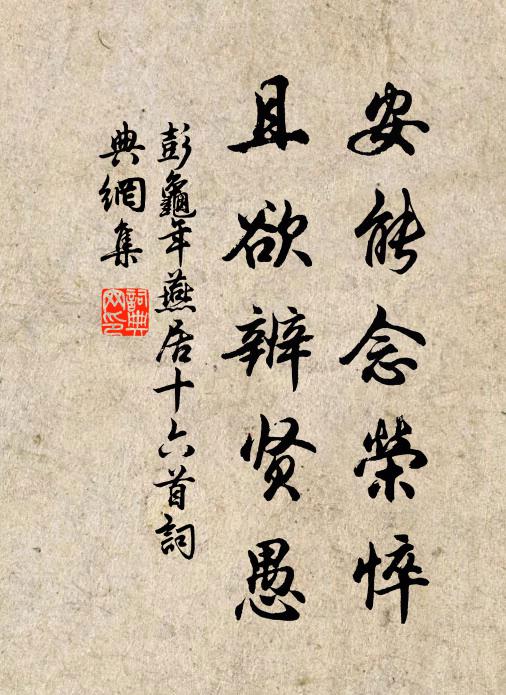 安能念榮悴
且欲辨贤愚
彭龜年燕居十六首詞
典網集
詞典
网印